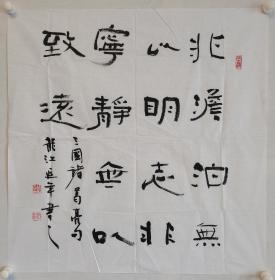 非澹泊無
以明志非
寧靜無以
致遠
三國諸葛亮句
龍江延年書之